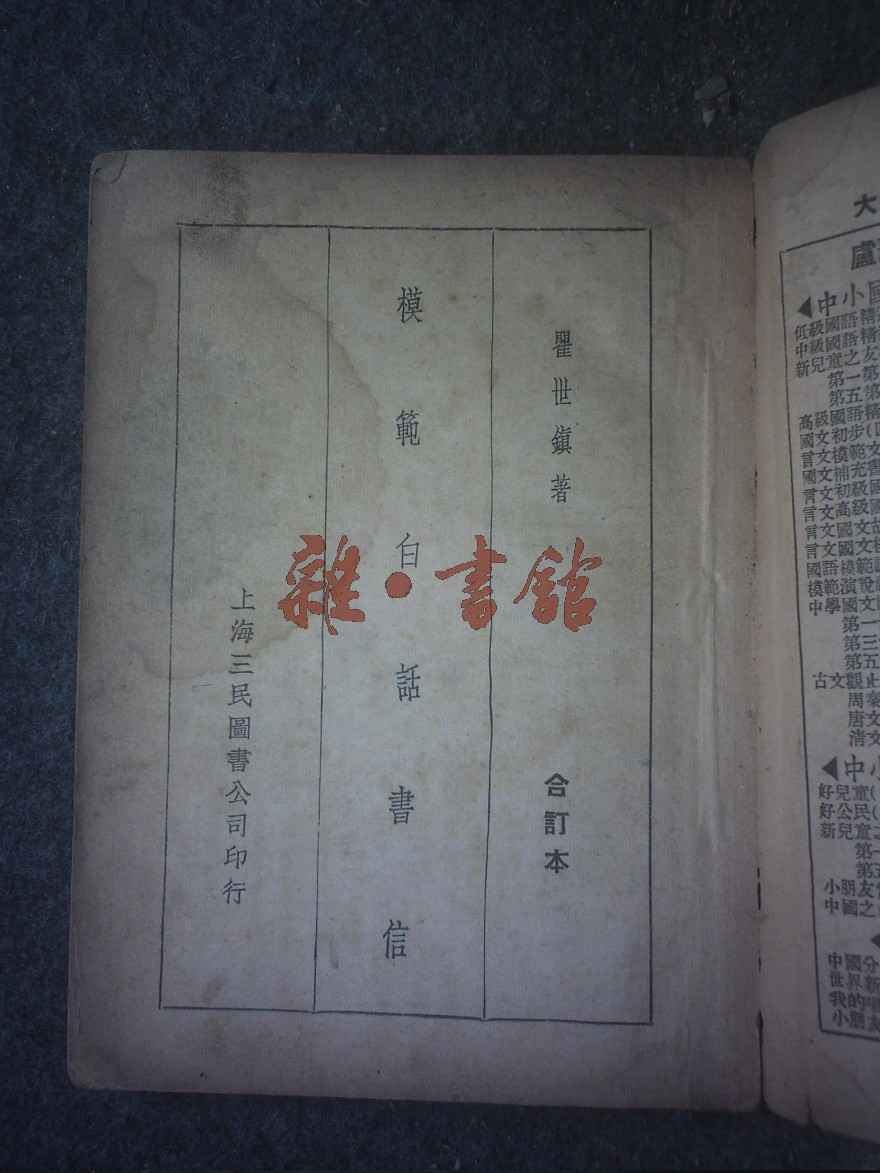 瞿世鎮著
合訂本
模範白話書信
上海三民圖書公司印行
雜·書館
大
盧
◀中小國
低級國語精
中級國語精
新兒童之友
第一第
第五第
高級國語精
國文初步(
言文模範文
國文補充書
言文初級國
言文高級國
言文國文故
國語模範
模範演說
中學國文
第一
第三
第五
古文觀止
周秦
唐文
清文
◀中小
好兒童(
好公民(
新兒童之
第一
第五
小朋友
中國之
◀
中國分
世界新
我的唱
小朋友